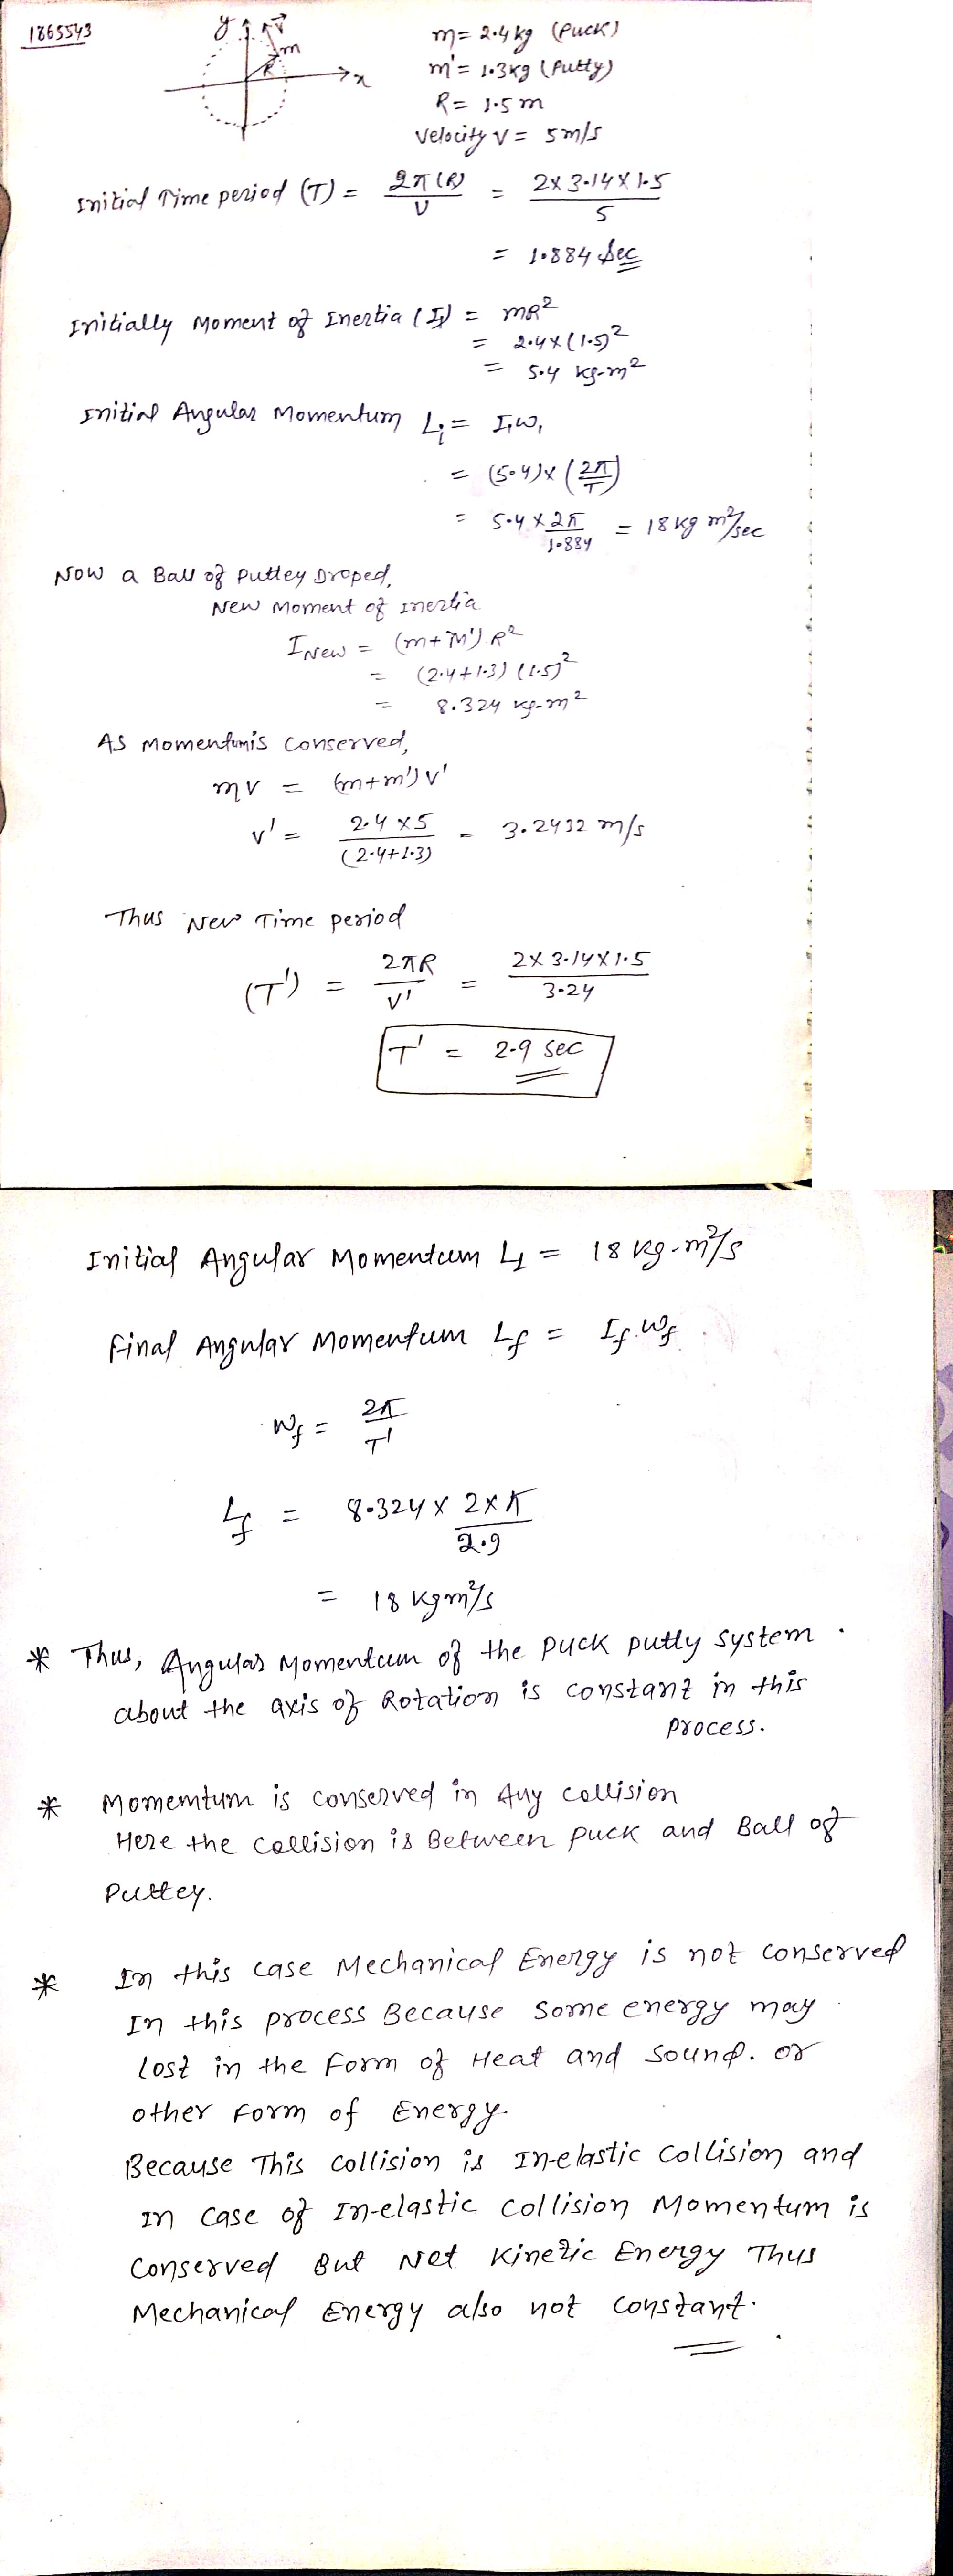 1865543
y
v
m
R
x
m = 2.4 kg (Puck)
m' = 1.3 kg (Putty)
R = 1.5 m
Velocity v = 5 m/s
Initial Time period (T) = 2π(R)/v = 2 x 3.14 x 1.5/5
= 1.884 Sec
Initially Moment of Inertia (I₁) = mR²
= 2.4 x (1.5)²
= 5.4 kg-m²
Initial Angular Momentum L₁ = I₁ω₁
= (5.4) x (2π/T)
= 5.4 x 2π/1.884 = 18 kg m²/sec
Now a Ball of puttey Droped,
New Moment of inertia
I New = (m+m') R²
= (2.4+1.3) (1.5)²
= 8.324 kg-m²
As Momentumis conserved,
mv = (m+m') v'
v' = 2.4 x 5/(2.4+1.3) = 3.2432 m/s
Thus New Time period
(T') = 2πR/v' = 2 x 3.14 x 1.5/3.24
T' = 2.9 sec
Initial Angular Momentum L₁ = 18 kg-m²/s
final Angular Momentum Lf = If.Wf
Wf = 2π/T'
Lf = 8.324 x 2 x π/2.9
= 18 kgm²/s
* Thus, Angular Momentum of the puck putty system.
about the axis of Rotation is constant in this
process.
* Momemtum is conserved in Any collision
Here the collision is Between puck and Ball of
Puttey.
* In this case Mechanical Energy is not conserved
In this process Because some energy may
lost in the form of Heat and sound. or
other form of Energy.
Because This collision is In-elastic collision and
in case of In-elastic collision Momentum is
conserved But Not Kinetic Energy Thus
Mechanical Energy also not constant.